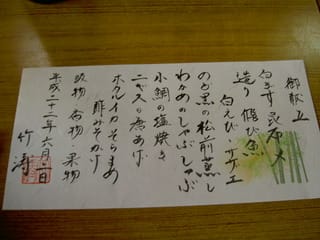 御献立
白ます 昆布〆
造り 飛び魚
白えび・サザエ
のど黒の松前蒸し
わかめのしゃぶしゃぶ
小鯛の塩焼き
ニギスの唐あげ
ホタルイカ そらまめ
酢みそかけ
飯物 香物・果物
平成二十二年六月二日
竹涛